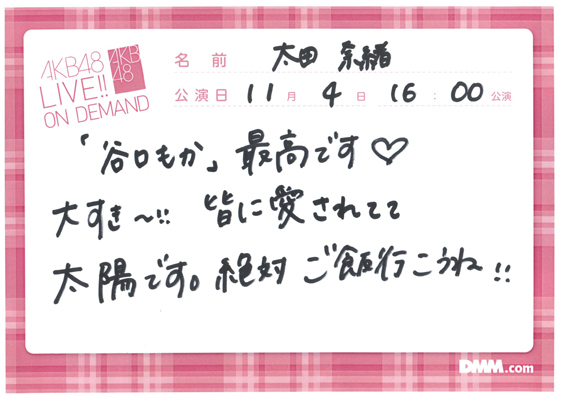 AKB48
LIVE!!
ON DEMAND
AKB
48
名前 太田 奈緒
公演日 11月 4日 16:00公演
「谷口もか」最高です♡
大すき〜!! 皆に愛されてて
太陽です。絶対 ご飯行こうね!!
DMM.com